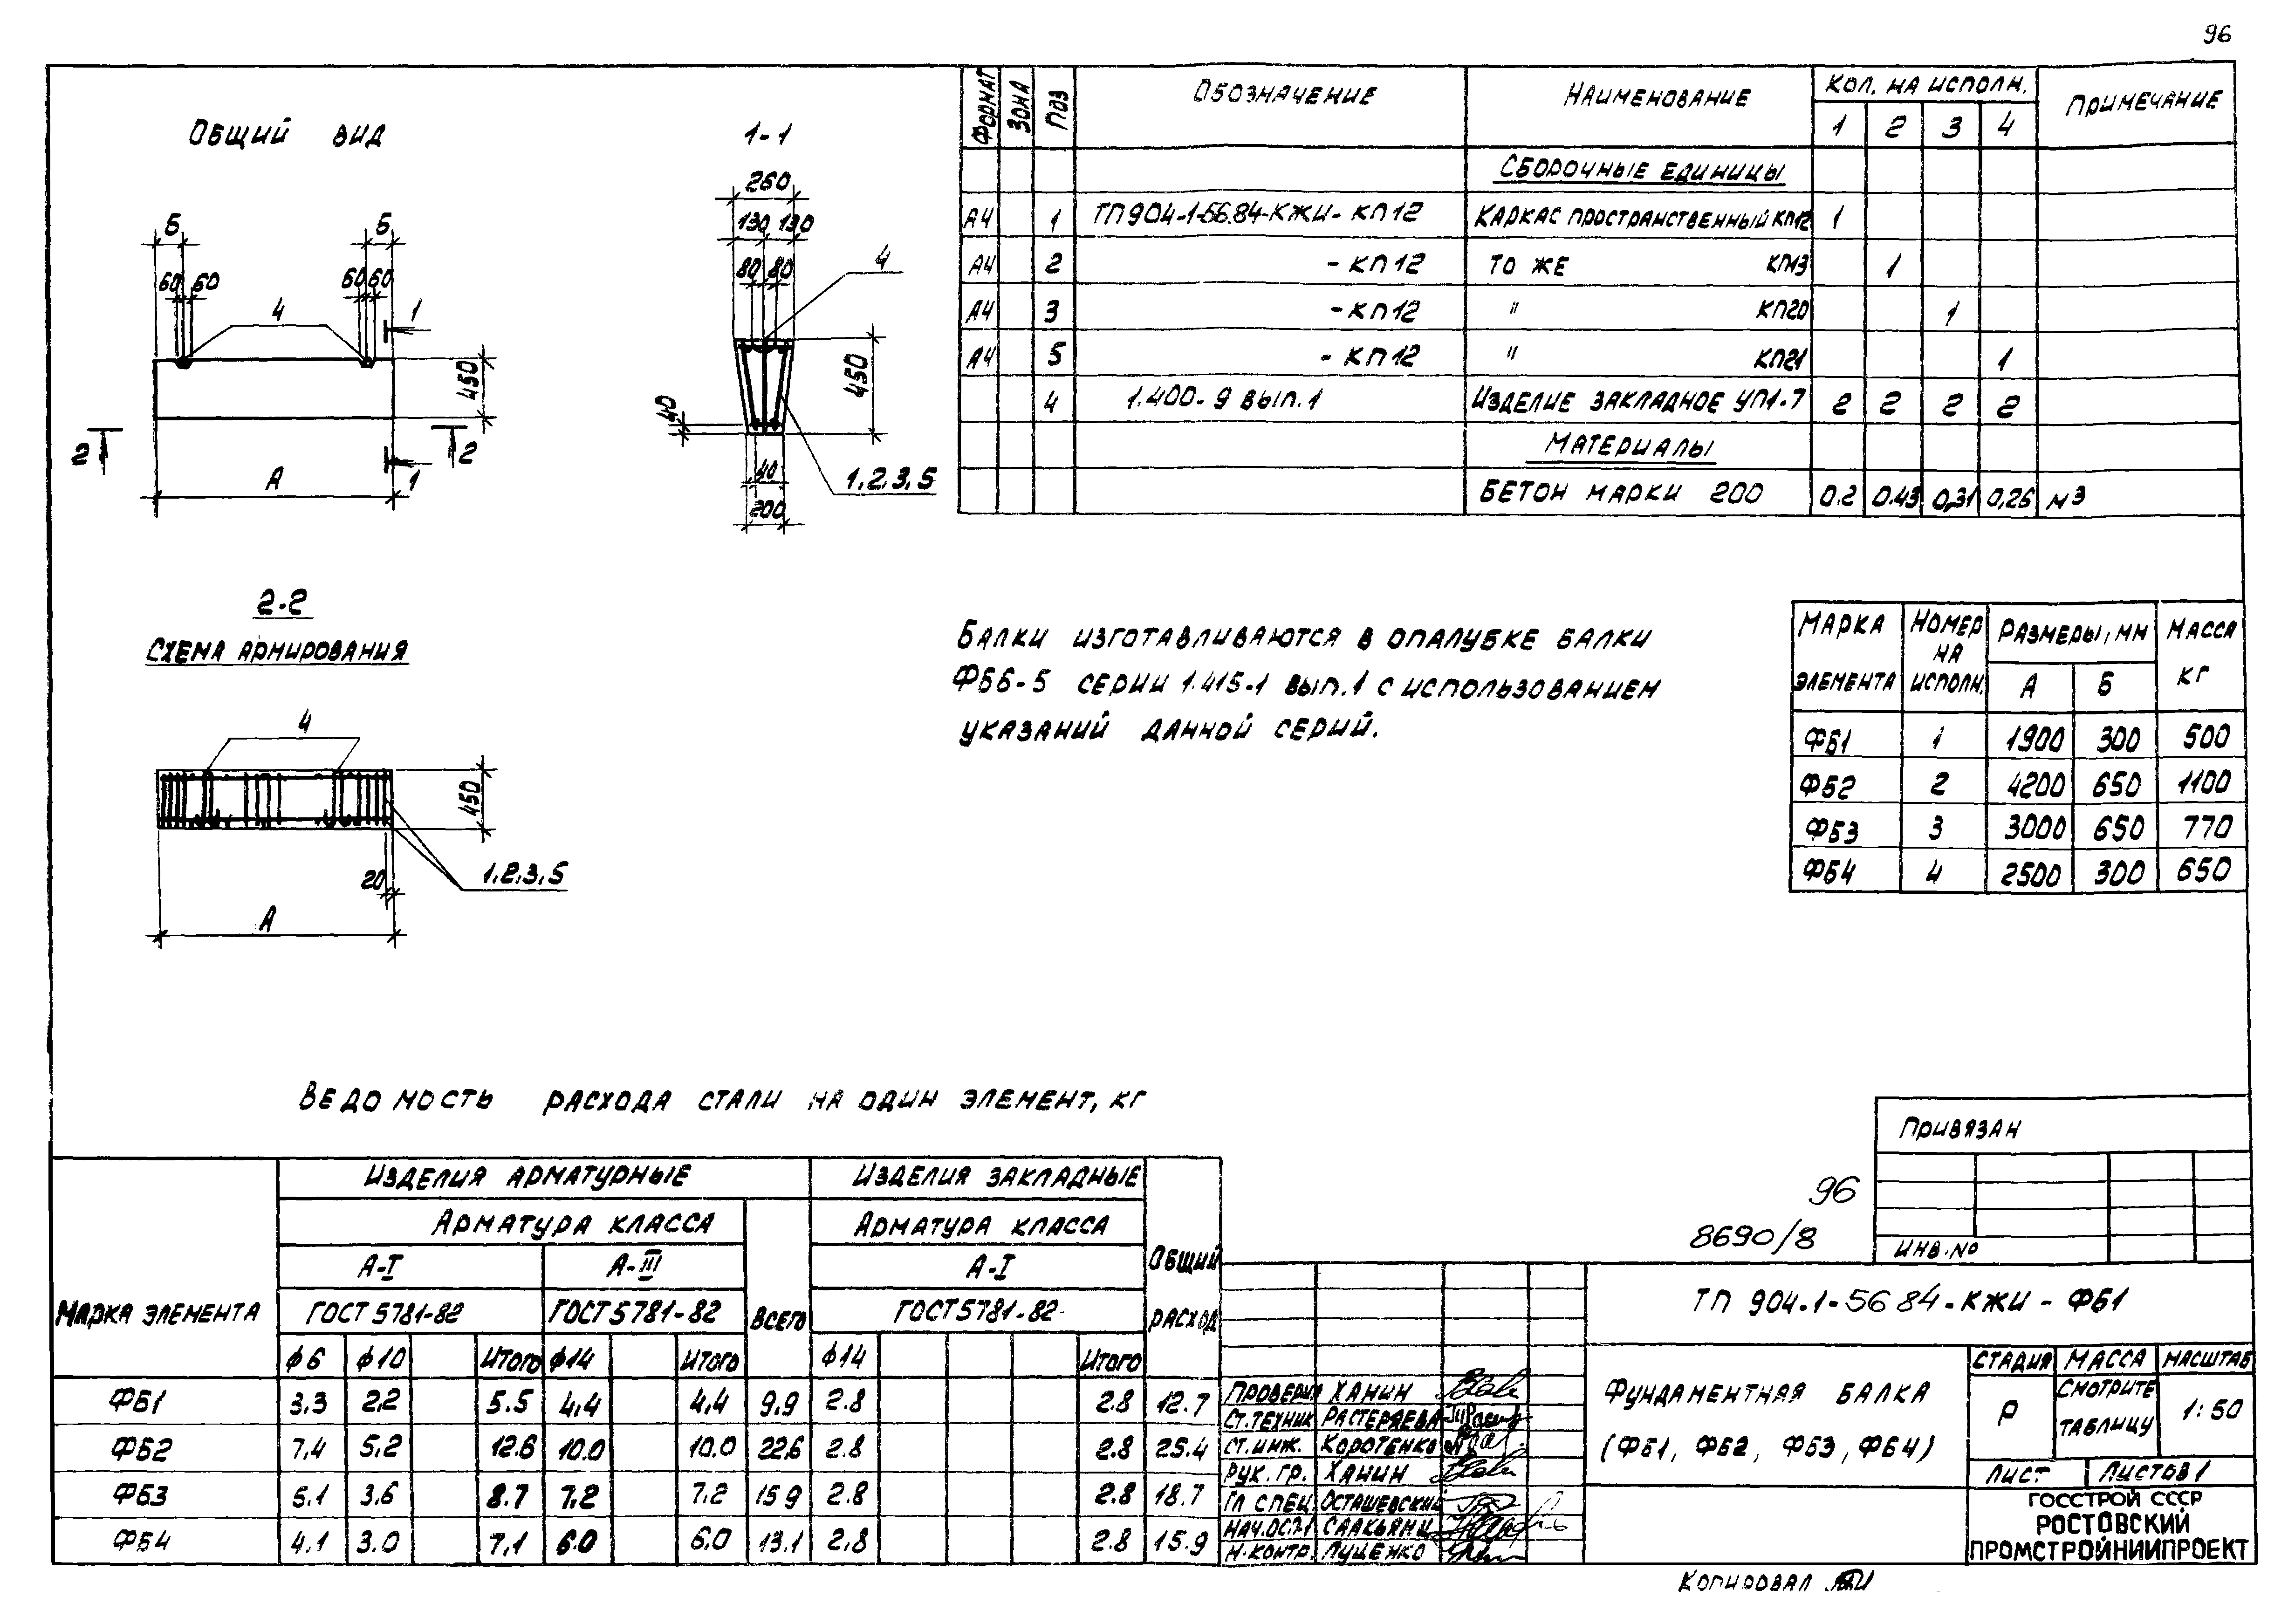 96
Общий вид
1-1
Б Б
60 60 60 60
4
1
450
2 2
А
1
260
130 130
80 80
4
450
40
40
200
1,2,3,5
2-2
Схема армирования
4
450
20
1,2,3,5
А
Формат Зона Поз Обозначение Наименование Кол. на исполн. Примечание
1 2 3 4
Сборочные единицы
А4 1 ТП904-1-56.84-КЖИ- КП12 Каркас пространственный КП12 1
А4 2 -КП12 То же КП13 1
А4 3 -КП12 " КП20 1
А4 5 -КП12 " КП21 1
4 1.400-9 вып.1 Изделие закладное УП1-7 2 2 2 2
Материалы
Бетон марки 200 0.2 0.43 0,31 0,26 м3
Балки изготавливаются в опалубке балки
ФБ6-5 серии 1.415-1 вып.1 с использованием
указаний данной серий.
Марка элемента Номер на исполн. Размеры, мм Масса кг
А Б
ФБ1 1 1900 300 500
ФБ2 2 4200 650 1100
ФБ3 3 3000 650 770
ФБ4 4 2500 300 650
Ведомость расхода стали на один элемент, кг
Марка элемента Изделия арматурные Изделия закладные Общий расход
Арматура класса Всего Арматура класса
А-I А-III А-I
ГОСТ 5781-82 ГОСТ 5781-82 ГОСТ 5781-82
ф6 ф10 Итого ф14 Итого ф14 Итого
ФБ1 3.3 2.2 5.5 4,4 4,4 9.9 2.8 2.8 12.7
ФБ2 7,4 5.2 12.6 10.0 10.0 22,6 2.8 2.8 25.4
ФБ3 5.1 3.6 8.7 7.2 7.2 15 9 2.8 2.8 18.7
ФБ4 4.1 3.0 7,1 6.0 6.0 13.1 2,8 2.8 15.9
Привязан
Инв.No
96
8690/8
ТП 904-1-56 84-КЖИ-ФБ1
Проверил Ханин
Ст.техник Растеряева
Ст.инж. Коротенко
Рук.гр. Ханин
Гл спец. Осташевский
Нач.ОС-1 Саакьянц
Н.контр. Луценко
Фундаментная балка
(ФБ1, ФБ2, ФБ3, ФБ4)
Стадия Масса Масштаб
Р Смотрите таблицу 1:50
Лист Листов 1
ГОССТРОЙ СССР
РОСТОВСКИЙ
ПРОМСТРОЙНИИПРОЕКТ
Копировал